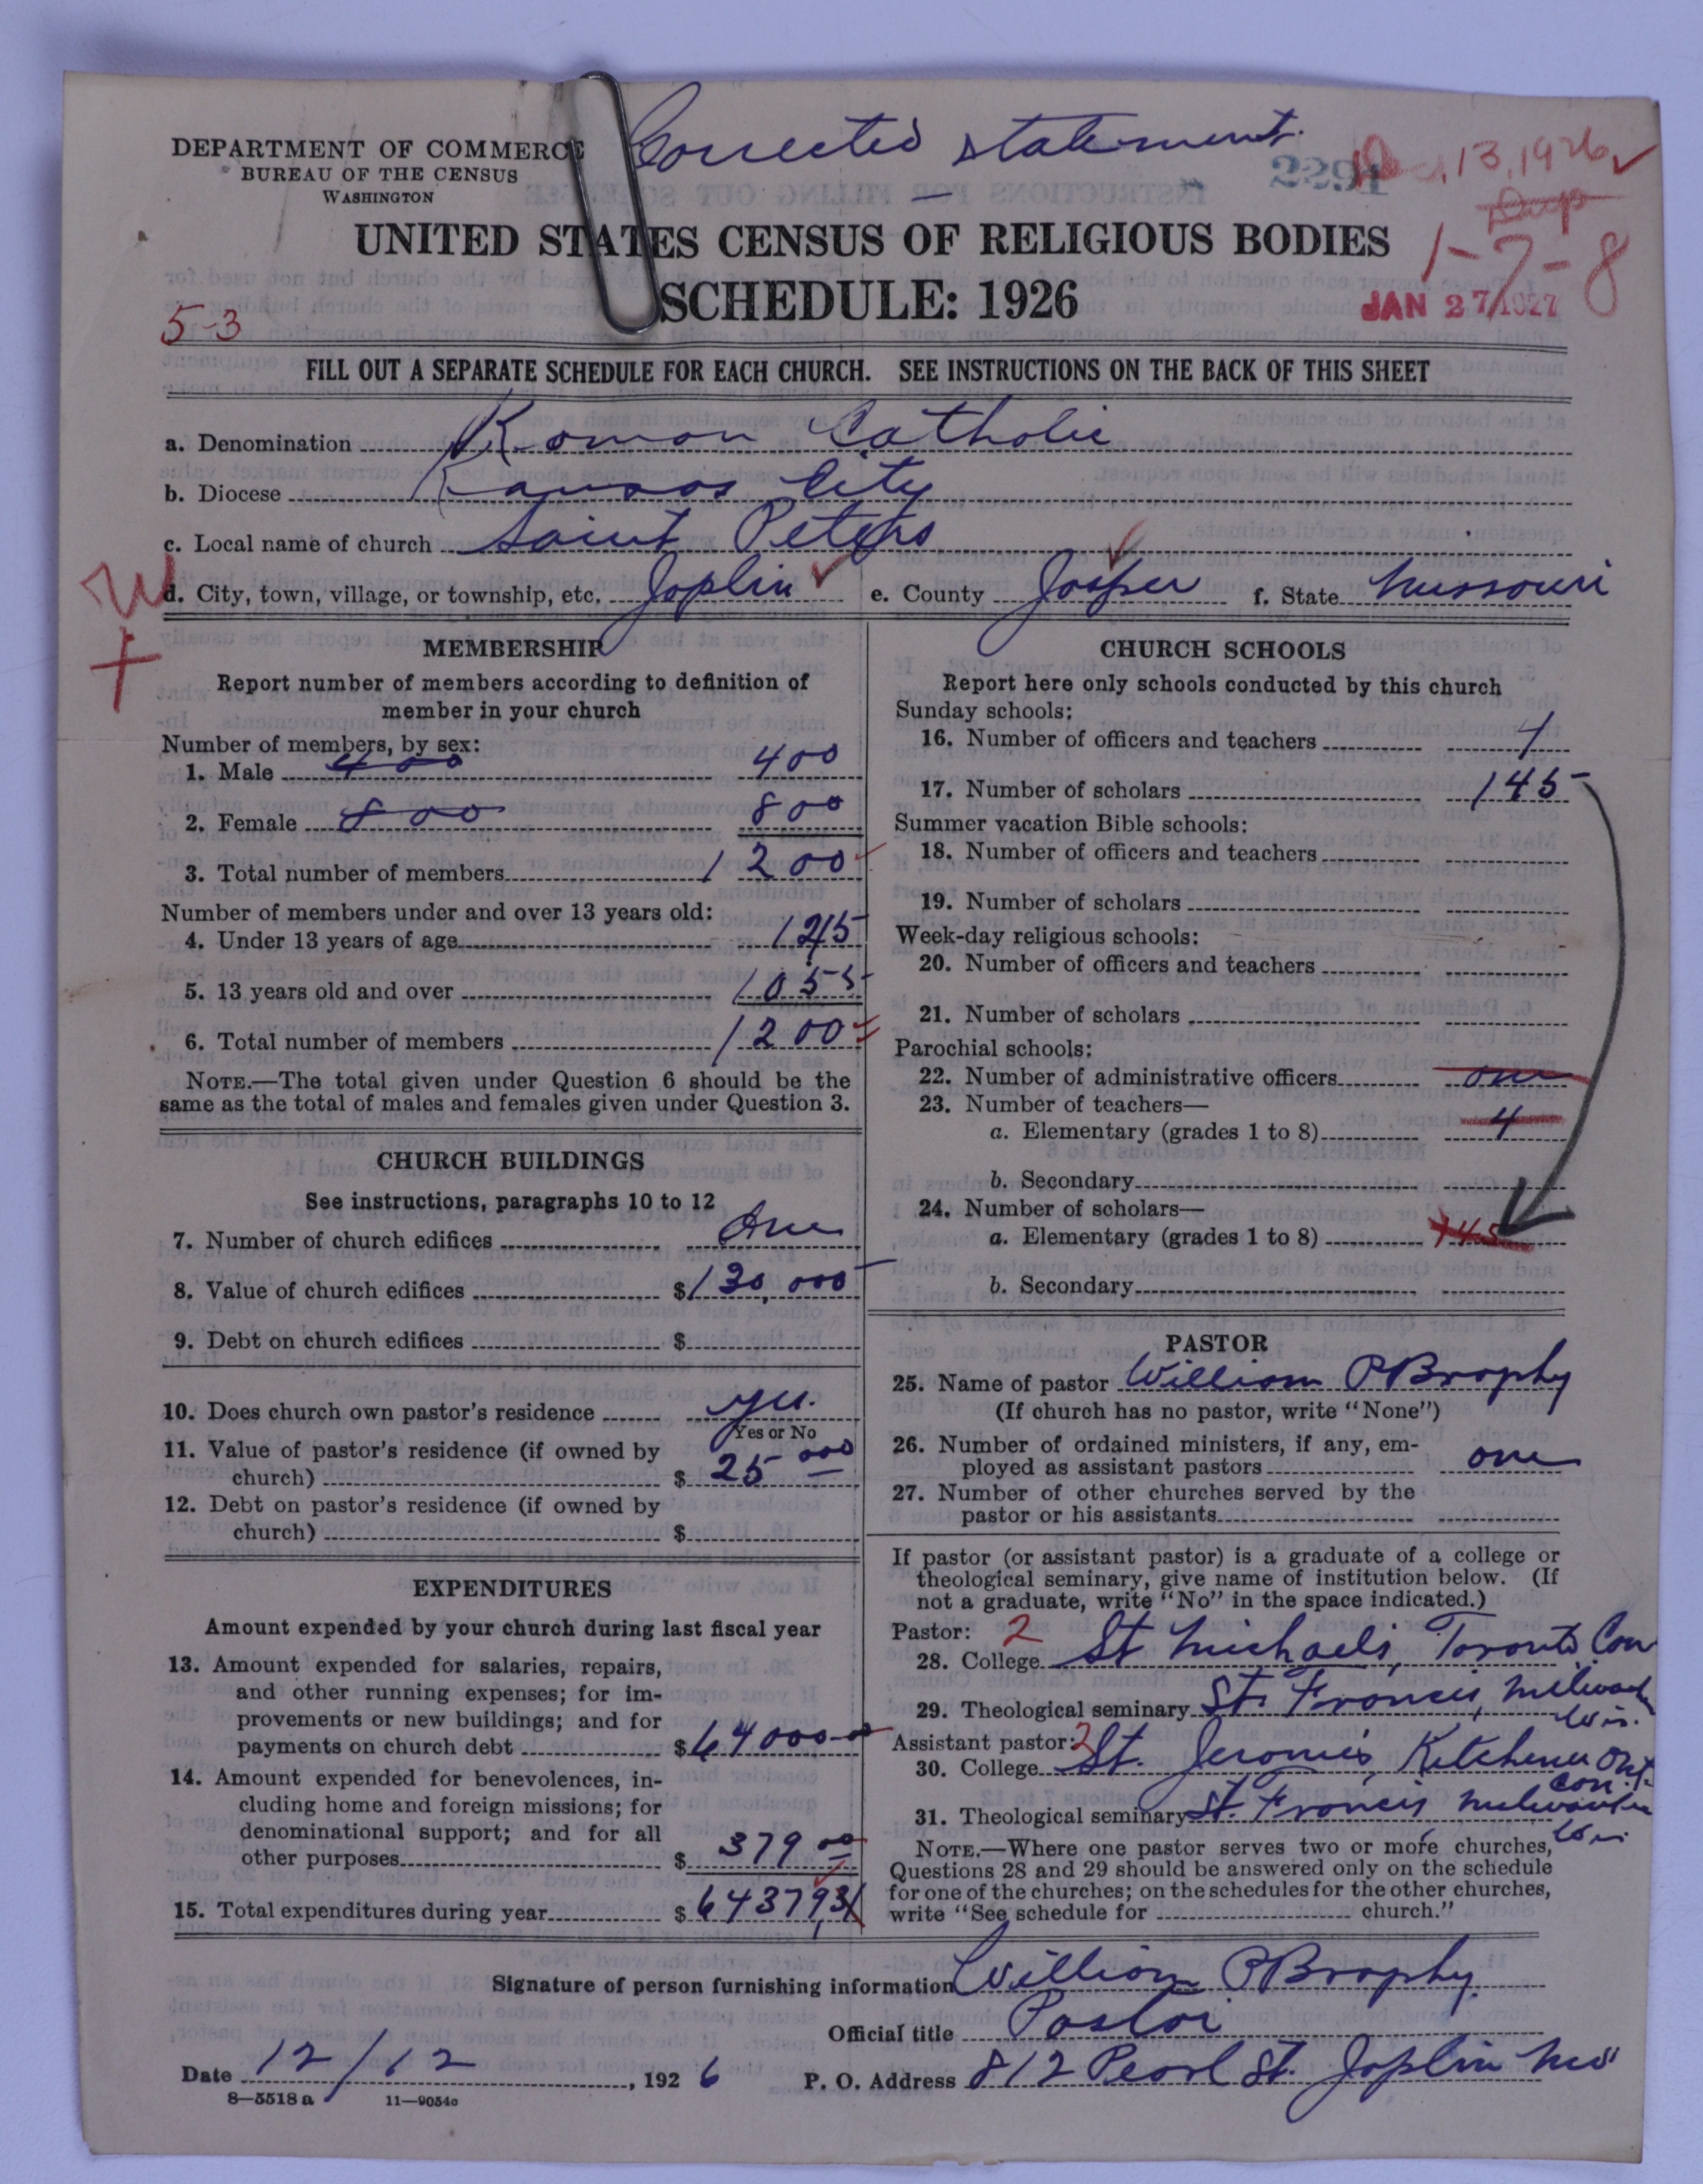 Corrected statement.
DEPARTMENT OF COMMERCE
BUREAU OF THE CENSUS
WASHINGTON
2294
13, 1926
Dup
UNITED STATES CENSUS OF RELIGIOUS BODIES
1-7-8
SCHEDULE: 1926
JAN 27 1927
5-3
FILL OUT A SEPARATE SCHEDULE FOR EACH CHURCH. SEE INSTRUCTIONS ON THE BACK OF THIS SHEET
a. Denomination Roman Catholic
b. Diocese Kansas City
c. Local name of church Saint Peters
d. City, town, village, or township, etc. Joplin e. County Jasper f. State Missouri
MEMBERSHIP
Report number of members according to definition of
member in your church
Number of members, by sex:
1. Male 400 400
2. Female 800 800
3. Total number of members 1200
Number of members under and over 13 years old:
4. Under 13 years of age 145
5. 13 years old and over 1055
6. Total number of members 1200
NOTE.—The total given under Question 6 should be the
same as the total of males and females given under Question 3.
CHURCH BUILDINGS
See instructions, paragraphs 10 to 12
7. Number of church edifices One
8. Value of church edifices $130,000
9. Debt on church edifices $
10. Does church own pastor's residence yes.
Yes or No
11. Value of pastor's residence (if owned by
church) $ 25 000
12. Debt on pastor's residence (if owned by
church) $
EXPENDITURES
Amount expended by your church during last fiscal year
13. Amount expended for salaries, repairs,
and other running expenses; for im-
provements or new buildings; and for
payments on church debt $64000
14. Amount expended for benevolences, in-
cluding home and foreign missions; for
denominational support; and for all
other purposes $ 379 00
15. Total expenditures during year $ 64379
CHURCH SCHOOLS
Report here only schools conducted by this church
Sunday schools:
16. Number of officers and teachers 4
17. Number of scholars 145
Summer vacation Bible schools:
18. Number of officers and teachers
19. Number of scholars
Week-day religious schools:
20. Number of officers and teachers
21. Number of scholars
Parochial schools:
22. Number of administrative officers one
23. Number of teachers—
a. Elementary (grades 1 to 8) 4
b. Secondary
24. Number of scholars—
a. Elementary (grades 1 to 8) 145
b. Secondary
PASTOR
25. Name of pastor William P Brophy
(If church has no pastor, write "None")
26. Number of ordained ministers, if any, em-
ployed as assistant pastors one
27. Number of other churches served by the
pastor or his assistants
If pastor (or assistant pastor) is a graduate of a college or
theological seminary, give name of institution below. (If
not a graduate, write "No" in the space indicated.)
Pastor: 2
28. College St Michaels, Toronto Can
29. Theological seminary St. Francis, Milwaukee
Wis.
Assistant pastor: 2
30. College St. Jeromes, Kitchener Ont.
Can.
31. Theological seminary St. Francis Milwaukee
Wis
NOTE.—Where one pastor serves two or more churches,
Questions 28 and 29 should be answered only on the schedule
for one of the churches; on the schedules for the other churches,
write "See schedule for church."
Signature of person furnishing information William P Brophy
Official title Pastor
Date 12/12, 1926 P. O. Address 812 Pearl St. Joplin Mo
8—5518a 11—9054a